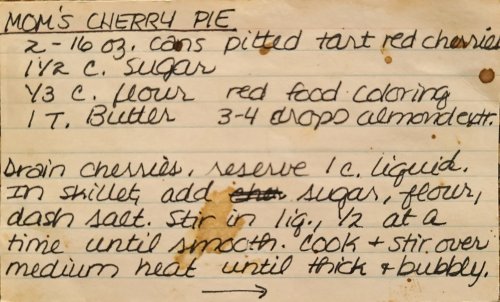 MOM'S CHERRY PIE
2-16 oz. cans pitted tart red cherries
1 1/2 c. sugar
1/3 c. flour red food coloring
1 T. Butter 3-4 drops almond extr.
Drain cherries, reserve 1 c. liquid.
In skillet, add sugar, flour,
dash salt. Stir in liq., 1/2 at a
time until smooth. Cook + stir over
medium heat until thick + bubbly.